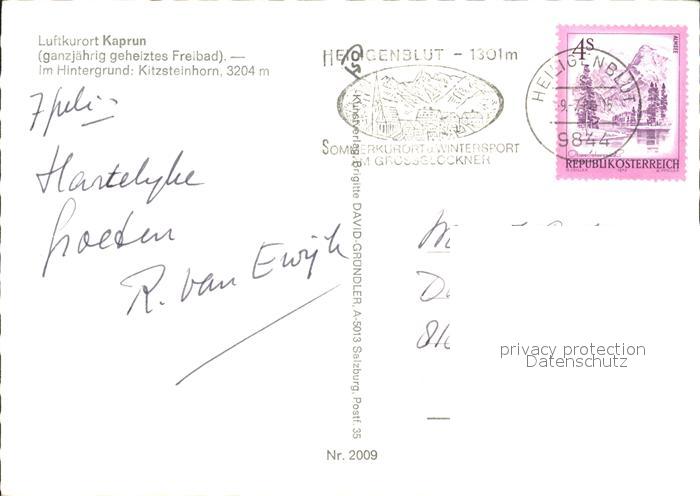 Luftkurort Kaprun
(ganzjährig geheiztes Freibad). —
Im Hintergrund: Kitzsteinhorn, 3204 m
7 juli
Hartelyke
Groeten
R. van Ewijk
HEILIGENBLUT - 1301m
SOMMERKURORT u. WINTERSPORT
AM GROSSGLOCKNER
HEILIGENBLUT
9844
4S
ALMSEE
REPUBLIK ÖSTERREICH
Kunstverlag Brigitte DAVID-GRÜNDLER, A-5013 Salzburg, Postf. 35
privacy protection
Datenschutz
Nr. 2009